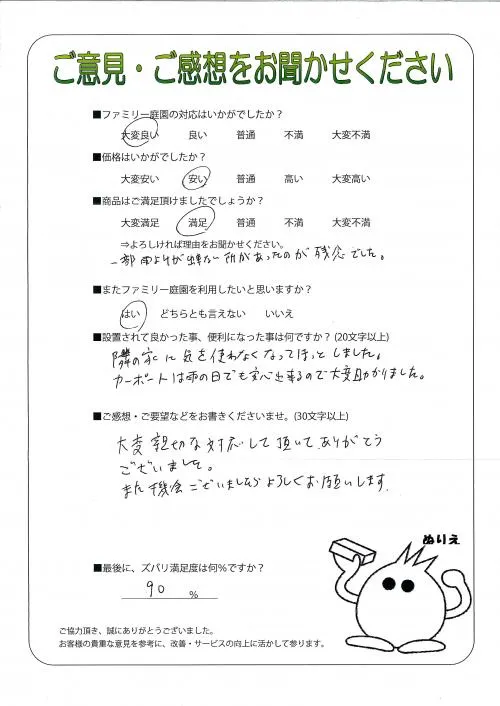 ご意見・ご感想をお聞かせください
■ファミリー庭園の対応はいかがでしたか？
大変良い 良い 普通 不満 大変不満
■価格はいかがでしたか？
大変安い 安い 普通 高い 大変高い
■商品はご満足頂けましたでしょうか？
大変満足 満足 普通 不満 大変不満
⇒よろしければ理由をお聞かせください。
一部 が出来ない所があったのが残念でした。
■またファミリー庭園を利用したいと思いますか？
はい どちらとも言えない いいえ
■設置されて良かった事、便利になった事は何ですか？(20文字以上)
隣の家に気を使わなくなってほっとしました。
カーポートは雨の日でも安心出来るので大変助かりました。
■ご感想・ご要望などをお書きくださいませ。(30文字以上)
大変親切な対応して頂いて、ありがとう
ございました。
また機会ございましたらよろしくお願いします。
ぬりえ
■最後に、ズバリ満足度は何％ですか？
90 %
ご協力頂き、誠にありがとうございました。
お客様の貴重な意見を参考に、改善・サービスの向上に活かして参ります。